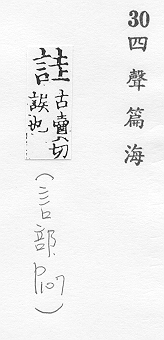 30 四聲篇海
詿 古賣切
誤也
(言部 P107)